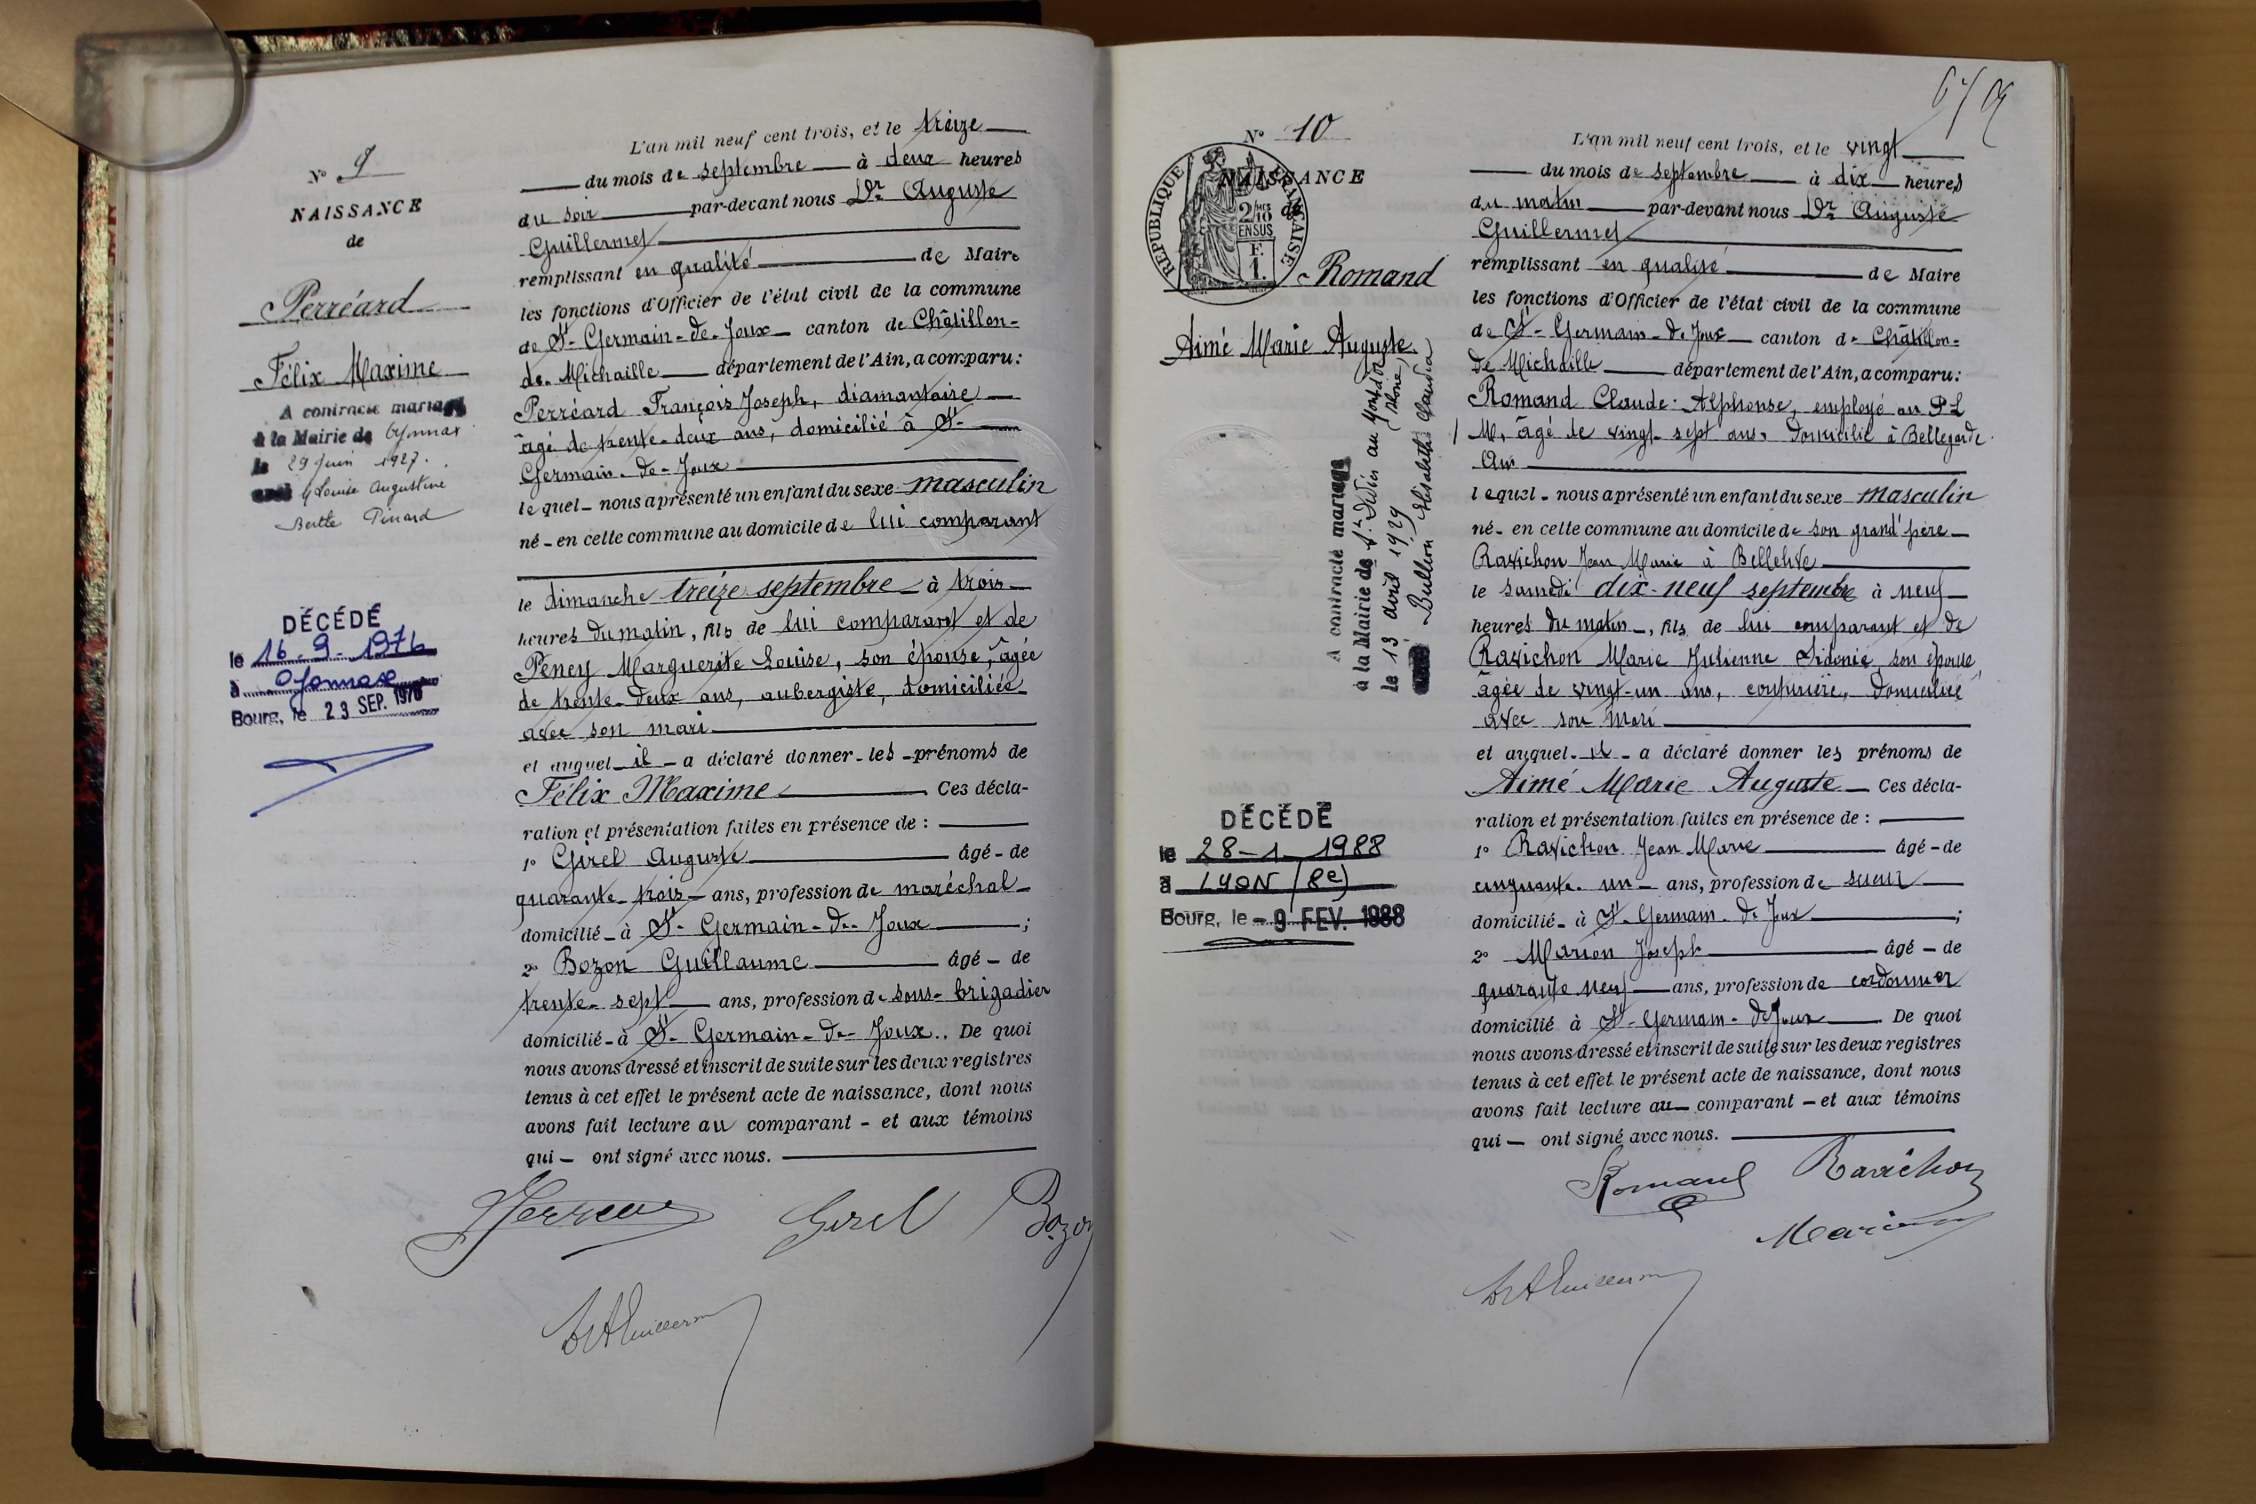 N° 9
NAISSANCE
de
Perréard
Félix Maxime
A contracté mariage
à la Mairie de Oyonnax
le 29 Juin 1927.
avec Louise Augustine
Berthe Pinard
DÉCÉDÉ
le 16-9-1976
à Oyonnax
Bourg, le 23 SEP. 1976
L'an mil neuf cent trois, et le treize
du mois de septembre à deux heures
du soir par-devant nous Dr Auguste
Guillermet
remplissant en qualité de Maire
les fonctions d'Officier de l'état civil de la commune
de St-Germain-de-Joux canton de Châtillon-
de-Michaille département de l'Ain, a comparu:
Perréard François Joseph, diamantaire
âgé de trente-deux ans, domicilié à St-
Germain-de-Joux
le quel - nous a présenté un enfant du sexe masculin
né - en cette commune au domicile de lui comparant
le dimanche treize septembre à trois
heures du matin, fils de lui comparant et de
Peney Marguerite Louise, son épouse, âgée
de trente-deux ans, aubergiste, domiciliée
avec son mari
et auquel il - a déclaré donner - les - prénoms de
Félix Maxime Ces décla-
ration et présentation faites en présence de :
1° Girel Auguste âgé - de
quarante-trois ans, profession de maréchal
domicilié - à St-Germain-de-Joux ;
2° Bozon Guillaume âgé - de
trente-sept ans, profession de sous-brigadier
domicilié - à St-Germain-de-Joux. De quoi
nous avons dressé et inscrit de suite sur les deux registres
tenus à cet effet le présent acte de naissance, dont nous
avons fait lecture au comparant - et aux témoins
qui - ont signé avec nous.
Girel Bozon
DrAGuillerm
N° 10
NAISSANCE
de
RÉPUBLIQUE FRANÇAISE
2/10
EN SUS
F.
1.
Romand
Aimé Marie Auguste
A contracté mariage
à la Mairie de St. Didier au Mont d'Or (Rhône)
le 13 avril 1929
avec Bullion Elisabeth Claudia
DÉCÉDÉ
le 28-1-1988
à LYON (8e)
Bourg, le - 9 FEV. 1988
L'an mil neuf cent trois, et le vingt
du mois de septembre à dix heures
du matin par-devant nous Dr Auguste
Guillermet
remplissant en qualité de Maire
les fonctions d'Officier de l'état civil de la commune
de St-Germain-de-Joux canton de Châtillon-
de Michaille département de l'Ain, a comparu:
Romand Claude-Alphonse, employé au P L
M, âgé de vingt-sept ans, domicilié à Bellegarde
Ain
lequel - nous a présenté un enfant du sexe masculin
né - en cette commune au domicile de son grand'père
Ravichon Jean Marie à
le samedi dix-neuf septembre à neuf
heures du matin, fils de lui comparant et de
Ravichon Marie Julienne Sidonie, son épouse,
âgée de vingt-un ans, couturière, domiciliée
avec son mari
et auquel - il - a déclaré donner les prénoms de
Aimé Marie Auguste Ces décla-
ration et présentation faites en présence de :
1° Ravichon Jean Marie âgé - de
cinquante-un ans, profession de
domicilié - à St-Germain-de Joux ;
2° Marion Joseph âgé - de
quarante neuf ans, profession de cordonnier
domicilié à St-Germain-de Joux De quoi
nous avons dressé et inscrit de suite sur les deux registres
tenus à cet effet le présent acte de naissance, dont nous
avons fait lecture au comparant - et aux témoins
qui - ont signé avec nous.
Romand Ravichon
Marion
DrAGuillerm